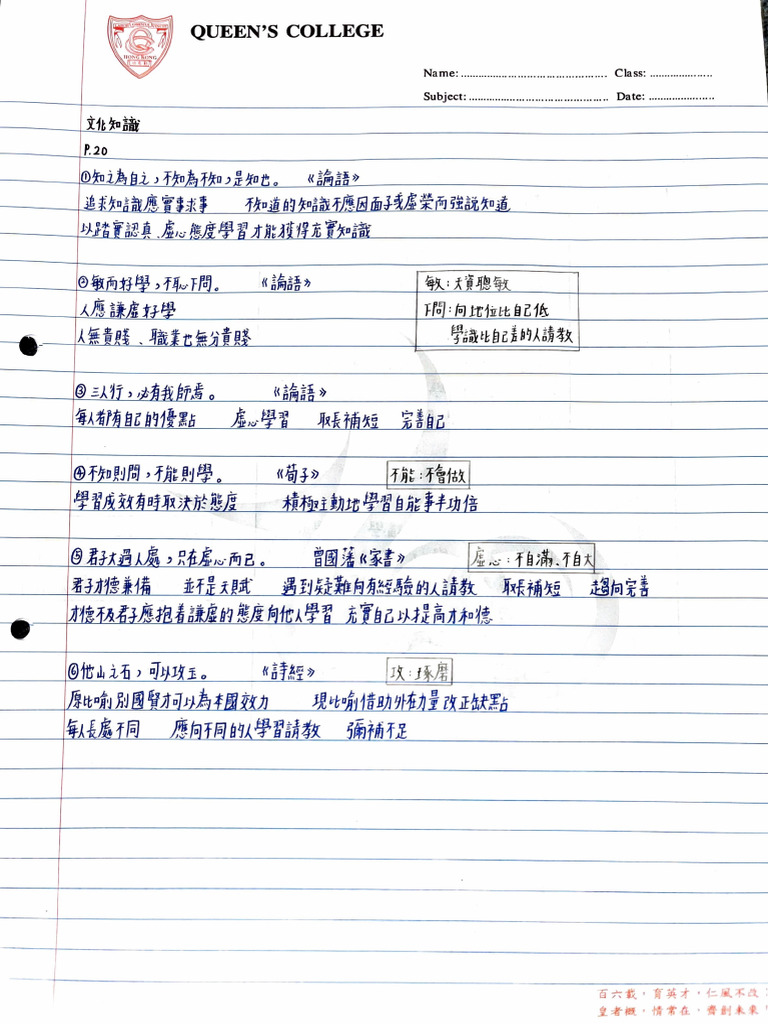 QUEEN'S COLLEGE
HONG KONG
Name: ............................................... Class: ....................
Subject: ............................................. Date: .....................
文化知識
P.20
①知之為自之，不知為不知，是知也。 《論語》
追求知識應實事求事 不知道的知識不應因面子或虛榮而強說知道
以踏實認真、虛心態度學習才能獲得充實知識
②敏而好學，不恥下問。 《論語》 敏：天資聰敏
人應謙虛好學 下問：向地位比自己低
人無貴賤、職業也無分貴賤 學識比自己差的人請教
③三人行，必有我師焉。 《論語》
每人都有自己的優點 虛心學習 取長補短 完善自己
④不知則問，不能則學。 《荀子》 不能：不會做
學習成效有時取決於態度 積極主動地學習自能事半功倍
⑤君子大過人處，只在虛心而已。 曾國藩《家書》 虛心：不自滿、不自大
君子才德兼備 並不是天賦 遇到疑難向有經驗的人請教 取長補短 趨向完善
才德不及君子應抱着謙虛的態度向他人學習 充實自己以提高才和德
⑥他山之石，可以攻玉。 《詩經》 攻：琢磨
原比喻別國賢才可以為本國效力 現比喻借助外在力量改正缺點
每人長處不同 應向不同的人學習請教 彌補不足
百六載，育英才，仁風不改
皇者概，情常在，齊創未來